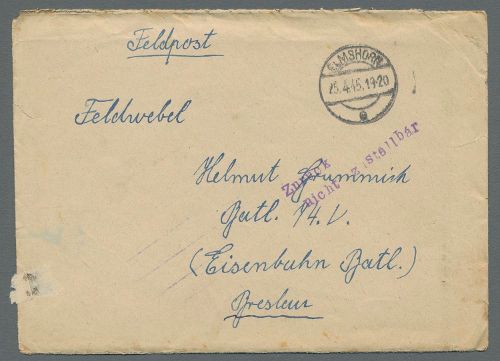 Feldpost
ELMSHORN
25.4.45.19-20
e
Feldwebel
Helmut Grummich
Zurück
nicht zustellbar
Batl. 74. V.
(Eisenbahn Batl.)
Breslau